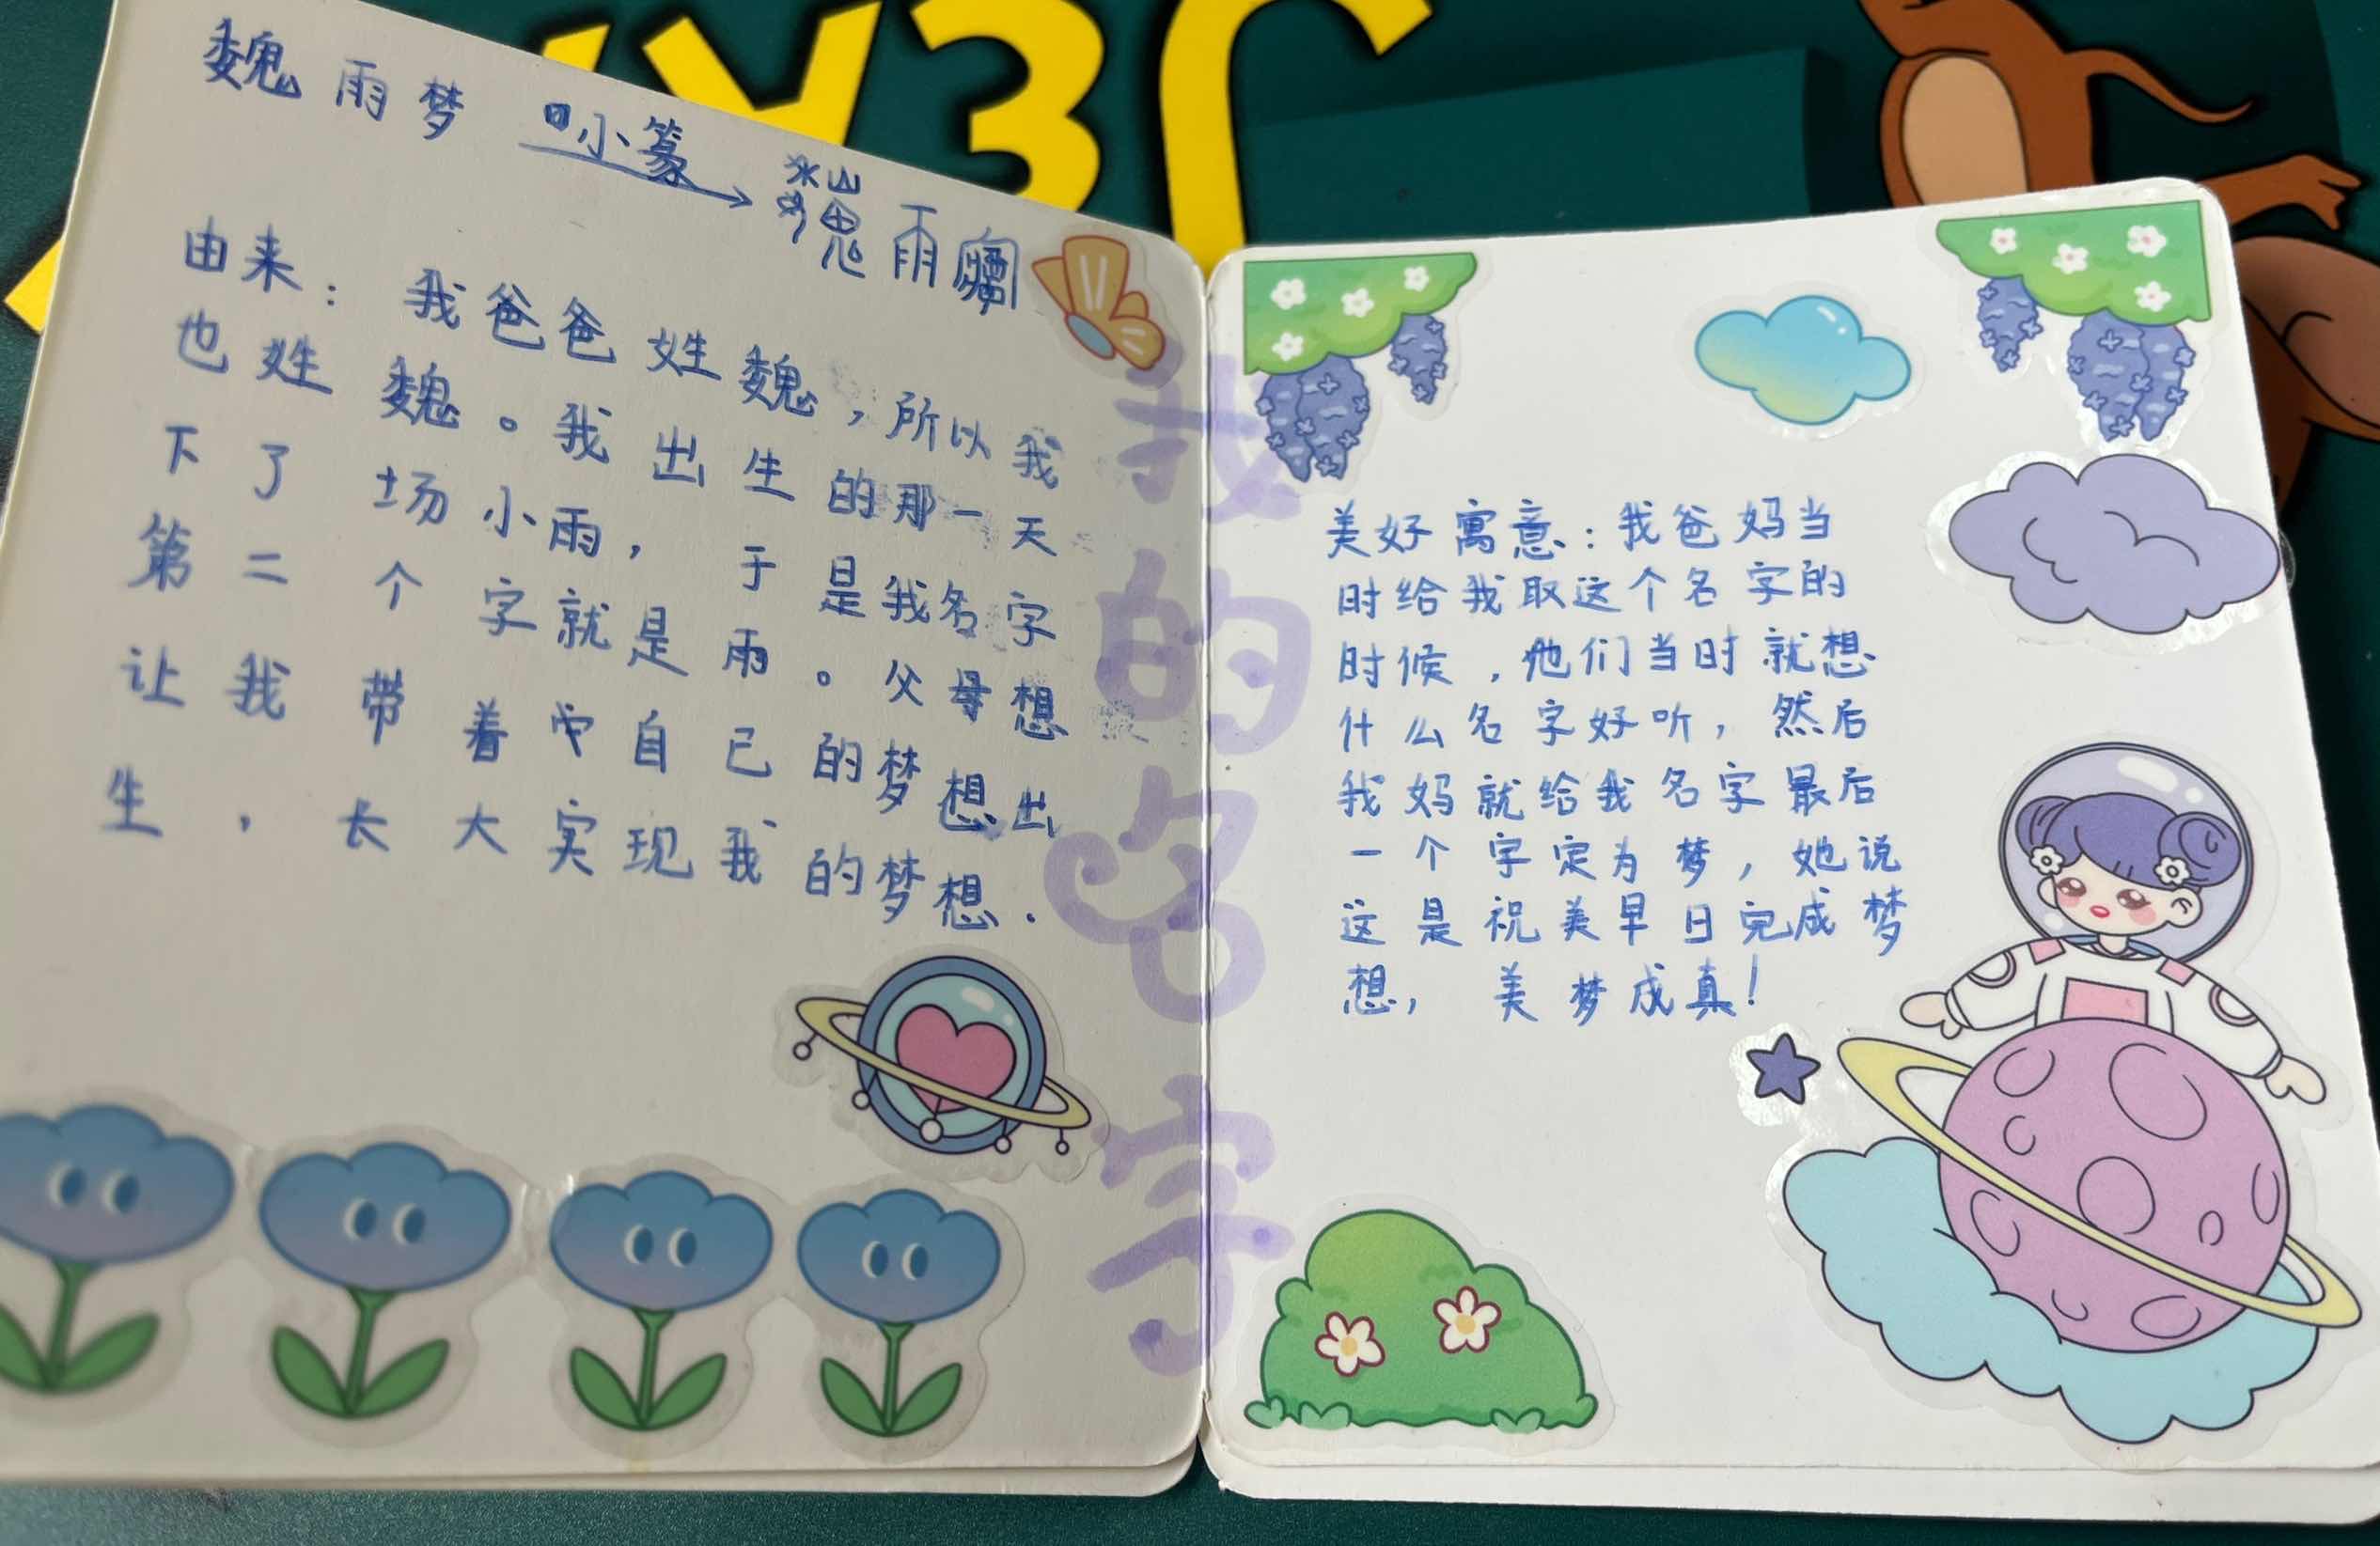 魏雨梦 小篆→ 魏雨夢
由来：我爸爸姓魏，所以我
也姓魏。我出生的那一天
下了场小雨，于是我名字
第二个字就是雨。父母想
让我带着自己的梦想出
生，长大实现我的梦想.
我的名字
美好寓意：我爸妈当
时给我取这个名字的
时候，他们当时就想
什么名字好听，然后
我妈就给我名字最后
一个字定为梦，她说
这是祝美早日完成梦
想，美梦成真！